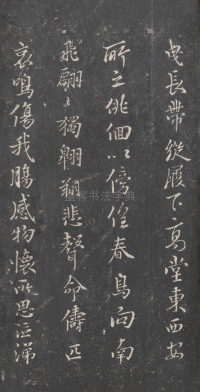 曳長帶縱履下高堂東西安
所之俳佪以傍徨春鳥向南
飛翩〻獨翱翔悲聲命儔匹
哀鳴傷我腸感物懷所思泣涕
书法字典